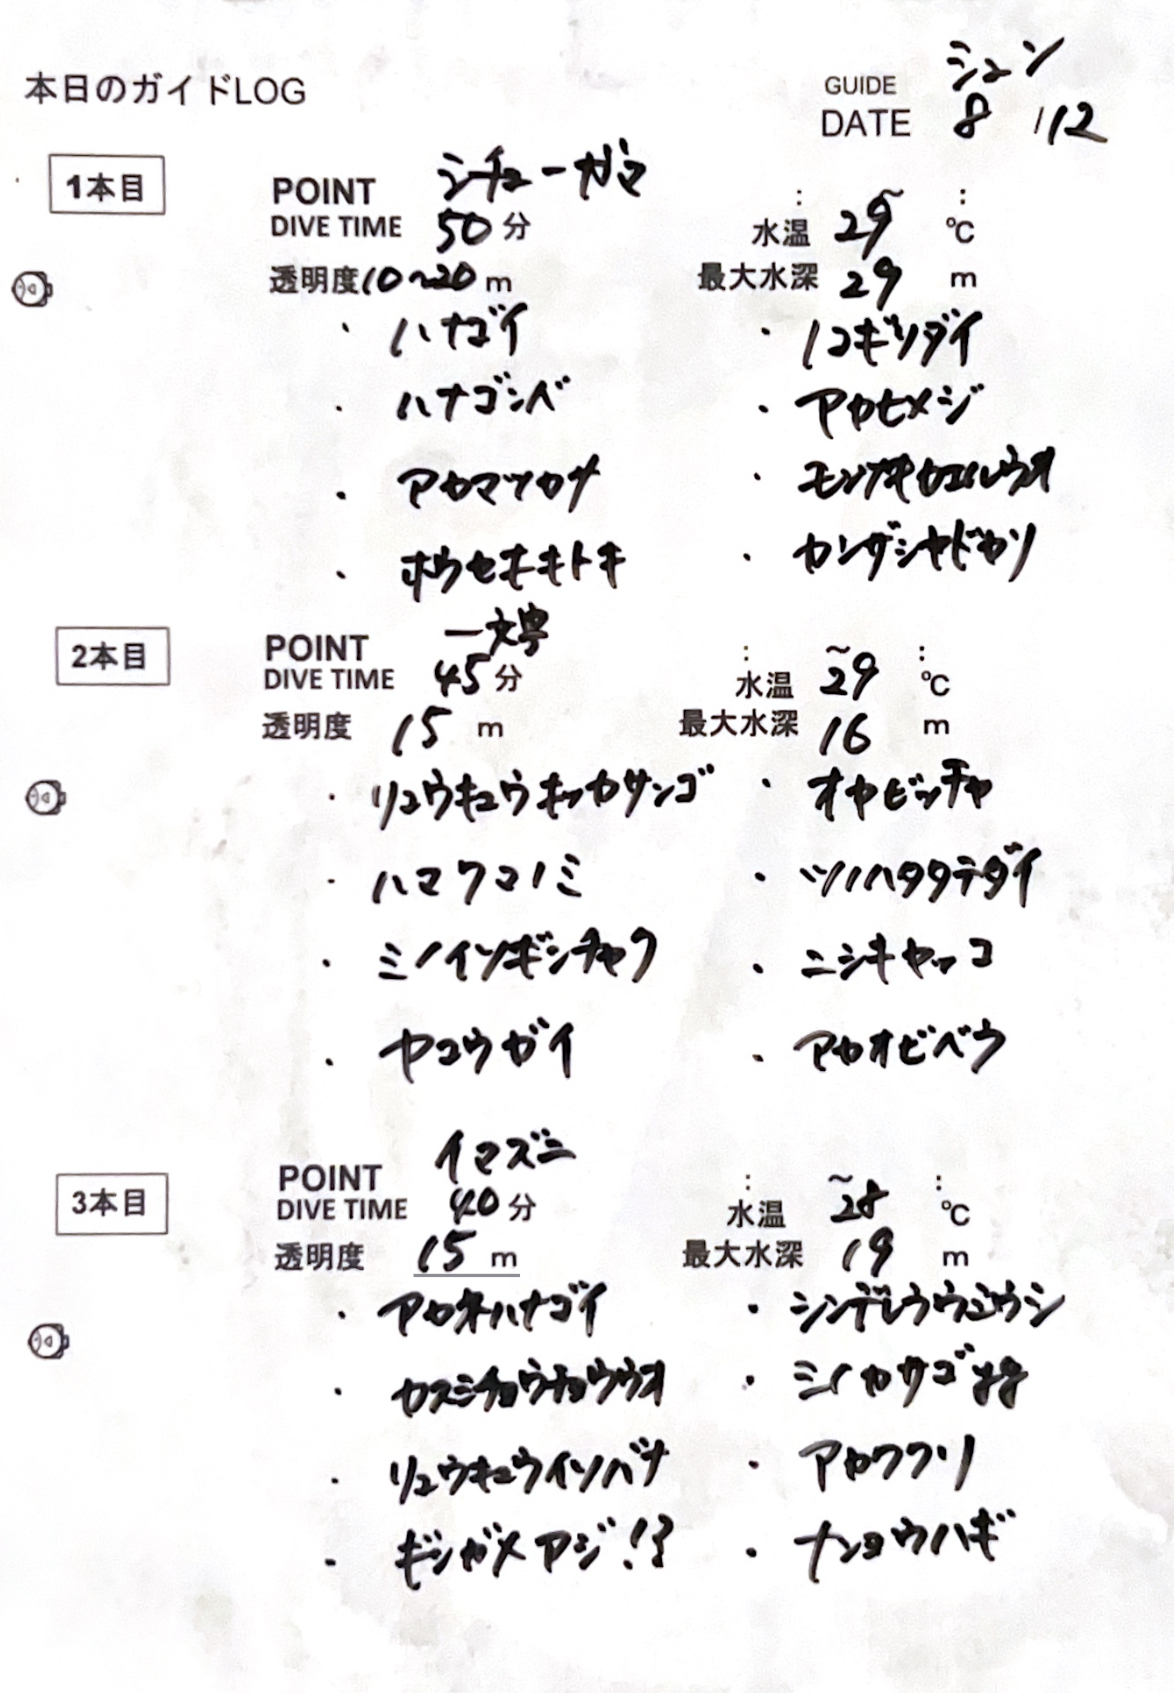 本日のガイドLOG
GUIDE シュン
DATE 8/12
1本目
POINT シチューガマ : ~ :
DIVE TIME 50分 水温 29℃
透明度10~20m 最大水深 29m
・ハナゴイ ・ノコギリダイ
・ハナゴンベ ・アカヒメジ
・アカマツカサ ・モンツキカエルウオ
・ホウセキキントキ ・カンザシヤドカリ
2本目
POINT 一文字 : ~ :
DIVE TIME 45分 水温 29℃
透明度 15m 最大水深 16m
・リュウキュウキッカサンゴ ・オヤビッチャ
・ハマクマノミ ・ツノハタタテダイ
・ミノイソギンチャク ・ニシキヤッコ
・ヤコウガイ ・アカオビベラ
3本目
POINT イマズニ : ~ :
DIVE TIME 40分 水温 28℃
透明度 15m 最大水深 19m
・アカネハナゴイ ・シンデレラウミウシ
・カスミチョウチョウウオ ・ミノカサゴyg
・リュウキュウイソバナ ・アカククリ
・ギンガメアジ!? ・ナンヨウハギ